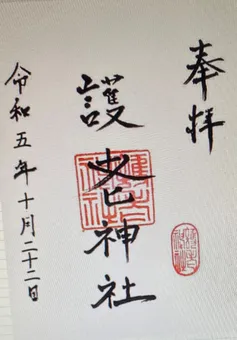 奉拝
護老神社
令和五年十月二十二日